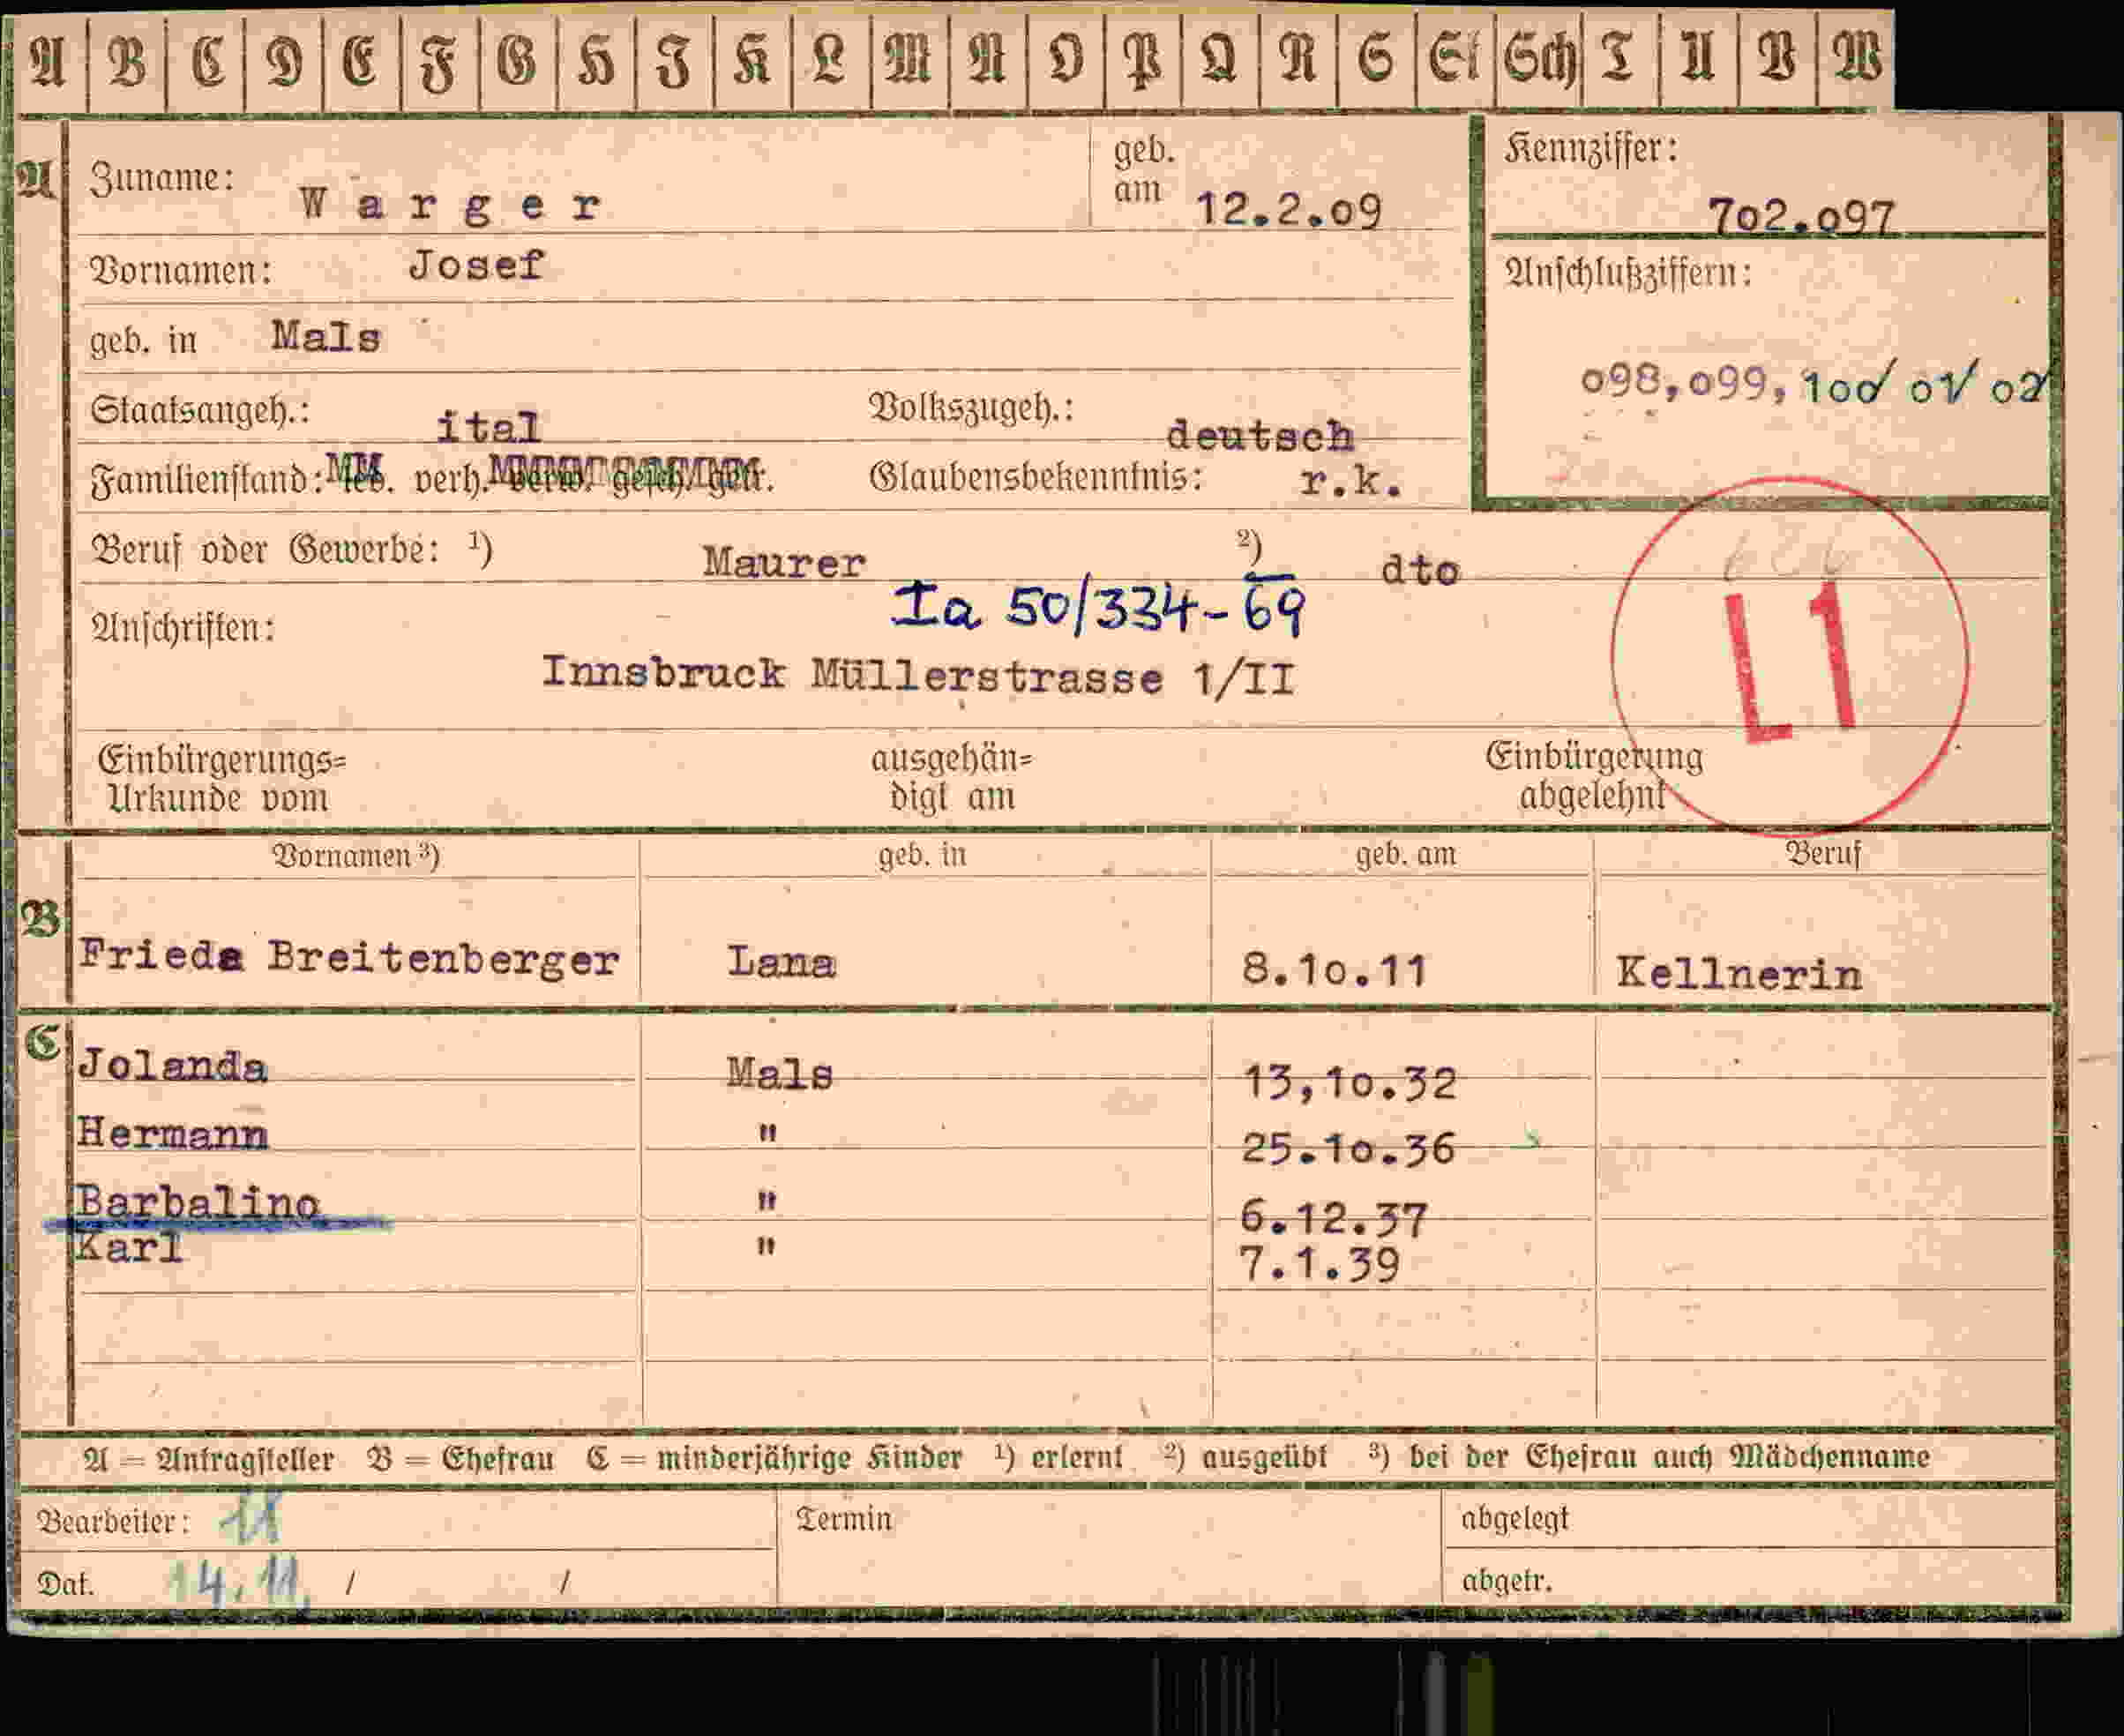 A B C D E F G H I K L M N O P Q R S St Sch T U V W
A Zuname: Warger geb. am 12.2.09
Kennziffer: 702.097
Vornamen: Josef
Anschlußziffern:
098,099,100/ 01/ 02/
geb. in Mals
Staatsangeh.: ital Volkszugeh.: deutsch
Familienstand: verh. Glaubensbekenntnis: r.k.
Beruf oder Gewerbe: ¹) Maurer ²) dto
Ia 50/334-69
L1
Anschriften:
Innsbruck Müllerstrasse 1/II
Einbürgerungs= ausgehän= Einbürgerung
Urkunde vom digt am abgelehnt
Vornamen ³) geb. in geb. am Beruf
B Frieda Breitenberger Lana 8.10.11 Kellnerin
C Jolanda Mals 13,10.32
Hermann " 25.10.36
Barbalino " 6.12.37
Karl " 7.1.39
A = Antragsteller B = Ehefrau C = minderjährige Kinder ¹) erlernt ²) ausgeübt ³) bei der Ehefrau auch Mädchenname
Bearbeiter: Termin abgelegt
Dat. 14.11. / / abgetr.